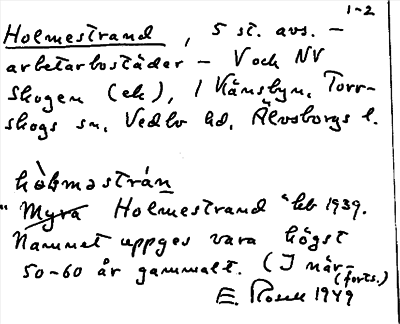 1-2
Holmestrand, 5 st. avs. –
arbetarbostäder – V och NV
Skogen (ek), i Vänsbyn, Torr-
skogs sn, Vedbo hd, Älvsborgs l.
hòlməstrán
" Myra Holmestrand " beb 1939.
Namnet uppges vara högst
50-60 år gammalt. (I när-
(forts.)
E. Rosell 1949